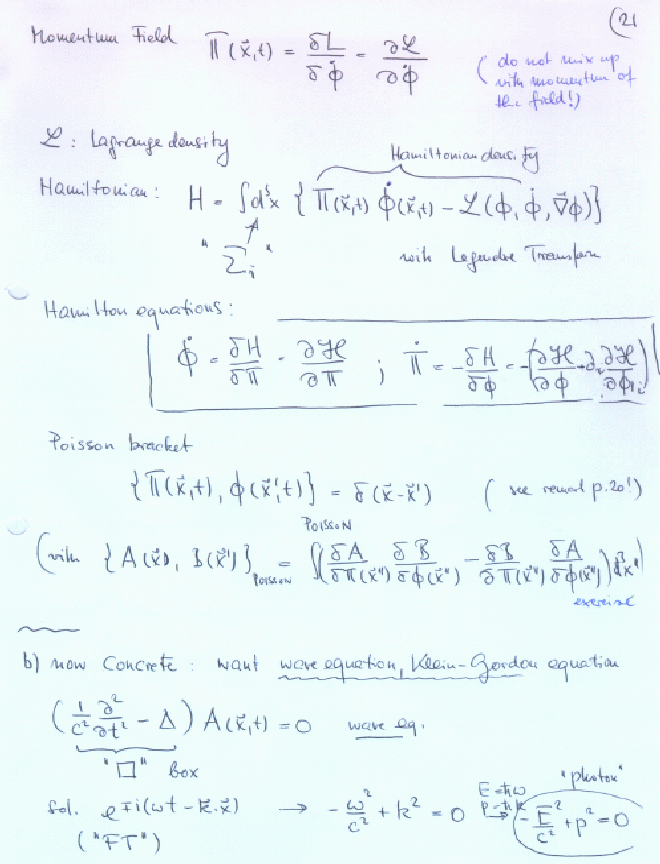 (21
Momentum Field Π(x⃗,t) = δL/δϕ̇ = ∂ℒ/∂ϕ̇
( do not mix up
with momentum of
the field!)
ℒ : Lagrange density
Hamiltonian density
Hamiltonian : H = ∫d³x { Π(x⃗,t) ϕ̇(x⃗,t) − ℒ(ϕ, ϕ̇, ∇⃗ϕ)}
" Σᵢ "
with Legendre Transform
Hamilton equations :
ϕ̇ = δH/δΠ = ∂ℋ/∂Π ; Π̇ = − δH/δϕ = −(∂ℋ/∂ϕ − ∂ᵢ ∂ℋ/∂ϕ|ᵢ)
Poisson bracket
{Π(x⃗,t), ϕ(x⃗',t)} = δ(x⃗−x⃗') ( see remark p.20!)
Poisson
(with {A(x⃗), B(x⃗')}Poisson = ∫(δA/δΠ(x⃗'') δB/δϕ(x⃗'') − δB/δΠ(x⃗'') δA/δϕ(x⃗''))d³x'')
exercise
b) now Concrete : want wave equation, Klein-Gordon equation
(1/c² ∂²/∂t² − Δ) A(x⃗,t) = 0 wave eq.
"□" Box
"photon"
Sol. e^∓i(ωt − k⃗.x⃗) → −ω²/c² + k² = 0 E=ħω p=ħk → −E²/c² + p² = 0
("FT")